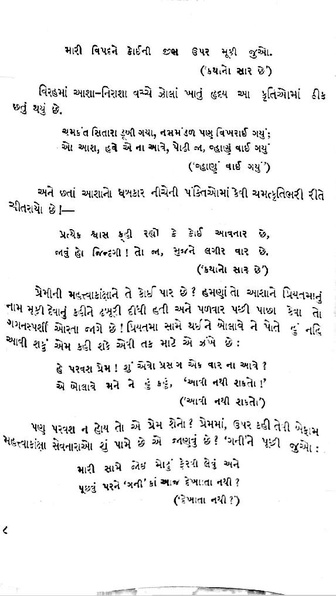 મારી વિપદને કોઈની જીભ ઉપર મૂકી જુઓ.
('કથાનો સાર છે')
વિરહમાં આશા-નિરાશા વચ્ચે ઝોલાં ખાતું હૃદય આ કૃતિઓમાં ઠીક
છતું થયું છે.
ચમકંત સિતારા ડૂબી ગયા, નભમંડળ પણ વિખરાઈ ગયું;
ઓ આશ, હવે એ ના આવે, પોઢી જા, વ્હાણું વાઈ ગયું
('વ્હાણું વાઈ ગયું')
અને છતાં આશાનો ધબકાર નીચેની પંક્તિઓમાં કેવી ચમત્કૃતિભરી રીતે
ચીતરાયો છે !—
પ્રત્યેક શ્વાસ કહી રહ્યો કે કોઈ આવનાર છે,
જાવું હો જિન્દગી ! તો જા, મુજને લગીર વાર છે.
('કથાનો સાર છે')
પ્રેમીની મહત્ત્વાકાંક્ષાને તે કોઈ પાર છે ? હમણાં તો આશાને પ્રિયતમાનું
નામ મૂકી દેવાનું કહીને ઢબૂરી દીધી હતી અને પળવાર પછી પાછા કેવા તો
ગગનસ્પર્શી ઓરતા જાગે છે ! પ્રિયતમા સામે થઈને બોલાવે ને પોતે હું નહિ
આવી શકું એમ કહી શકે એવી તક માટે એ ઝંખે છે :
હે પરવશ પ્રેમ ! શું એવો પ્રસંગ એક વાર ના આવે ?
એ બોલાવે મને ને હું કહું, 'આવી નથી શકતો !'
('આવી નથી શકતો')
પણ પરવશ ન હોય તો એ પ્રેમ શેનો ? પ્રેમમાં, ઉપર કહી તેવી બેફામ
મહત્ત્વાકાંક્ષા સેવનારાઓ શું પામે છે એ જાણવું છે ? 'ગની'ને પૂછી જુઓ :
મારી સામે જોઇ મોઢું ફેરવી લેવું અને
પૂછવું પરને 'ગની' કાં આજ દેખાતા નથી ?
('દેખાતા નથી ?')
૮